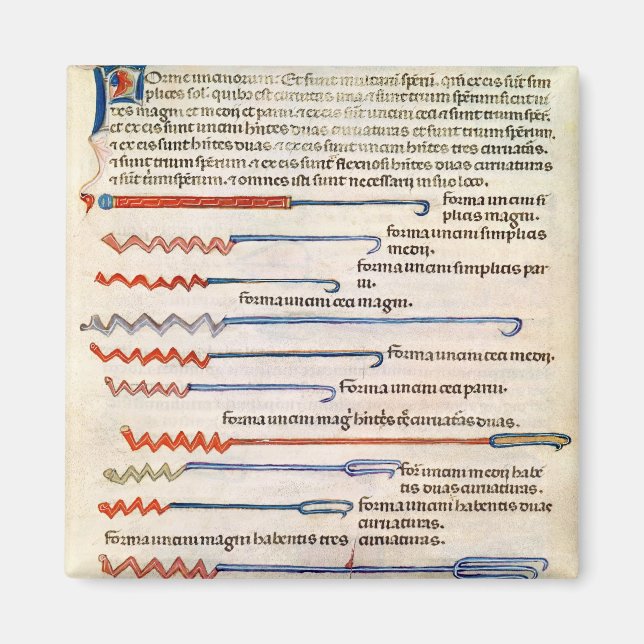 Forme uncinorum. Et sunt multarum sperum. qm̄ ex eis sūt sim
plices sol. quibꝰ est curuitas una ⁊ sunt trium sperum sicut ui
tes magni et meōrī et parui. ⁊ ex eis sūt uncini ceci ⁊ sunt trium sper.
et ex eis sunt uncini hn̄tes duas curuaturas et sunt trium sperum.
⁊ ex eis sunt hn̄tes duas. ⁊ ex eis sunt uncini hn̄tes tres curuatas.
⁊ sunt trium sperum. ⁊ ex eis sunt flexuosi hn̄tes duas curuaturas
⁊ sūt triūm sperum. ⁊ omnes isti sunt necessarii in suo loco.
forma uncini si
plicis magni.
forma uncini simplicis
meōīj.
forma uncini simplicis par
ui.
forma uncini ceci magni.
forma uncini ceci meōīj.
forma uncini ceci parui.
forma uncini magⁱ hn̄tēs curuatas duas.
forᵃ uncini meōrī habe
tis duas curuaturas.
forma uncini habentis duas
curuaturas.
forma uncini magni habentis tres curuaturas.